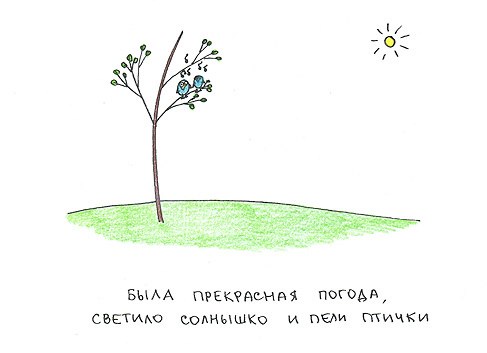 БЫЛА ПРЕКРАСНАЯ ПОГОДА,
СВЕТИЛО СОЛНЫШКО И ПЕЛИ ПТИЧКИ